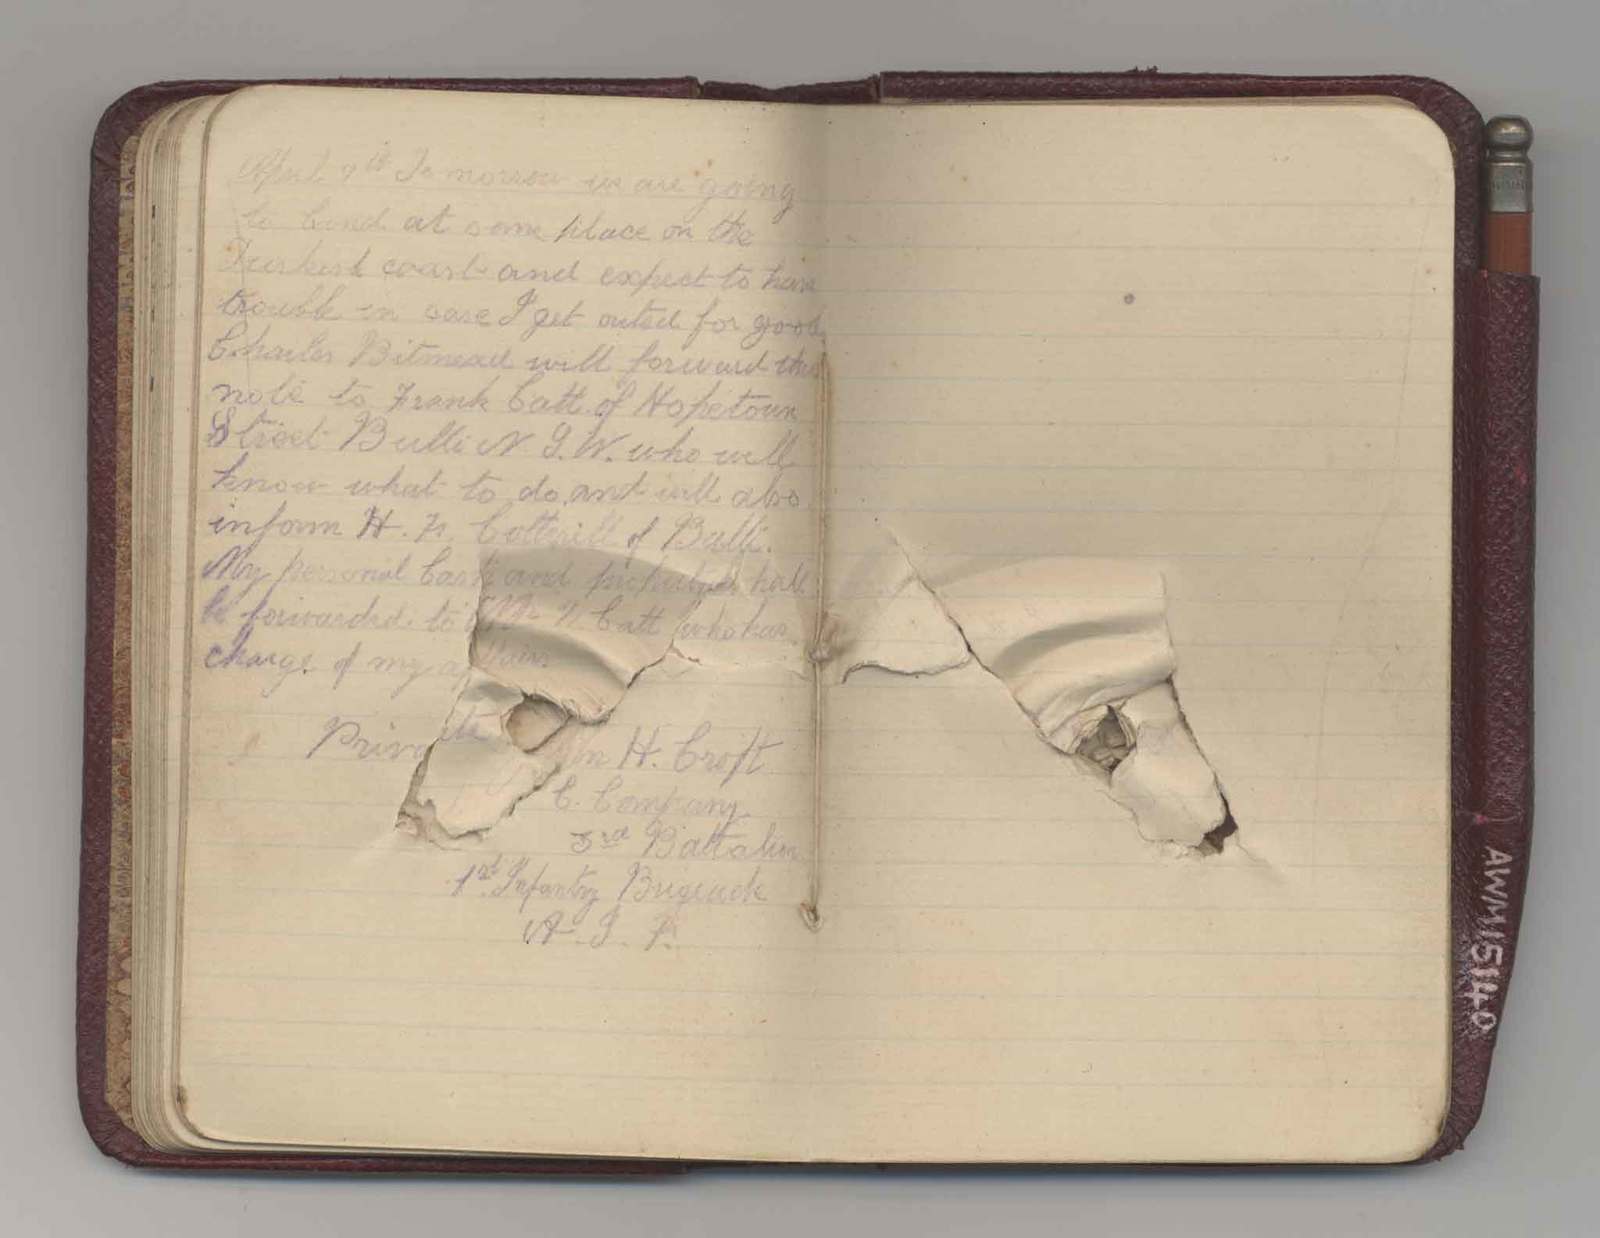 April 7th Tomorrow we are going
to land at some place on the
Turkish coast and expect to have
trouble in case I get outed for good
Charles Bitmead will forward this
note to Frank Catt of Hopetoun
Street Bulli N.S.W. who will
know what to do and will also
inform H. F. Cotterill of Bulli.
My personal Cash and
be forwarded to Mr F. Catt who has
charge of my affairs
Private H. Croft
C. Company
3rd Battalion
1st Infantry Brigade
A. I. F.
AWM 15140